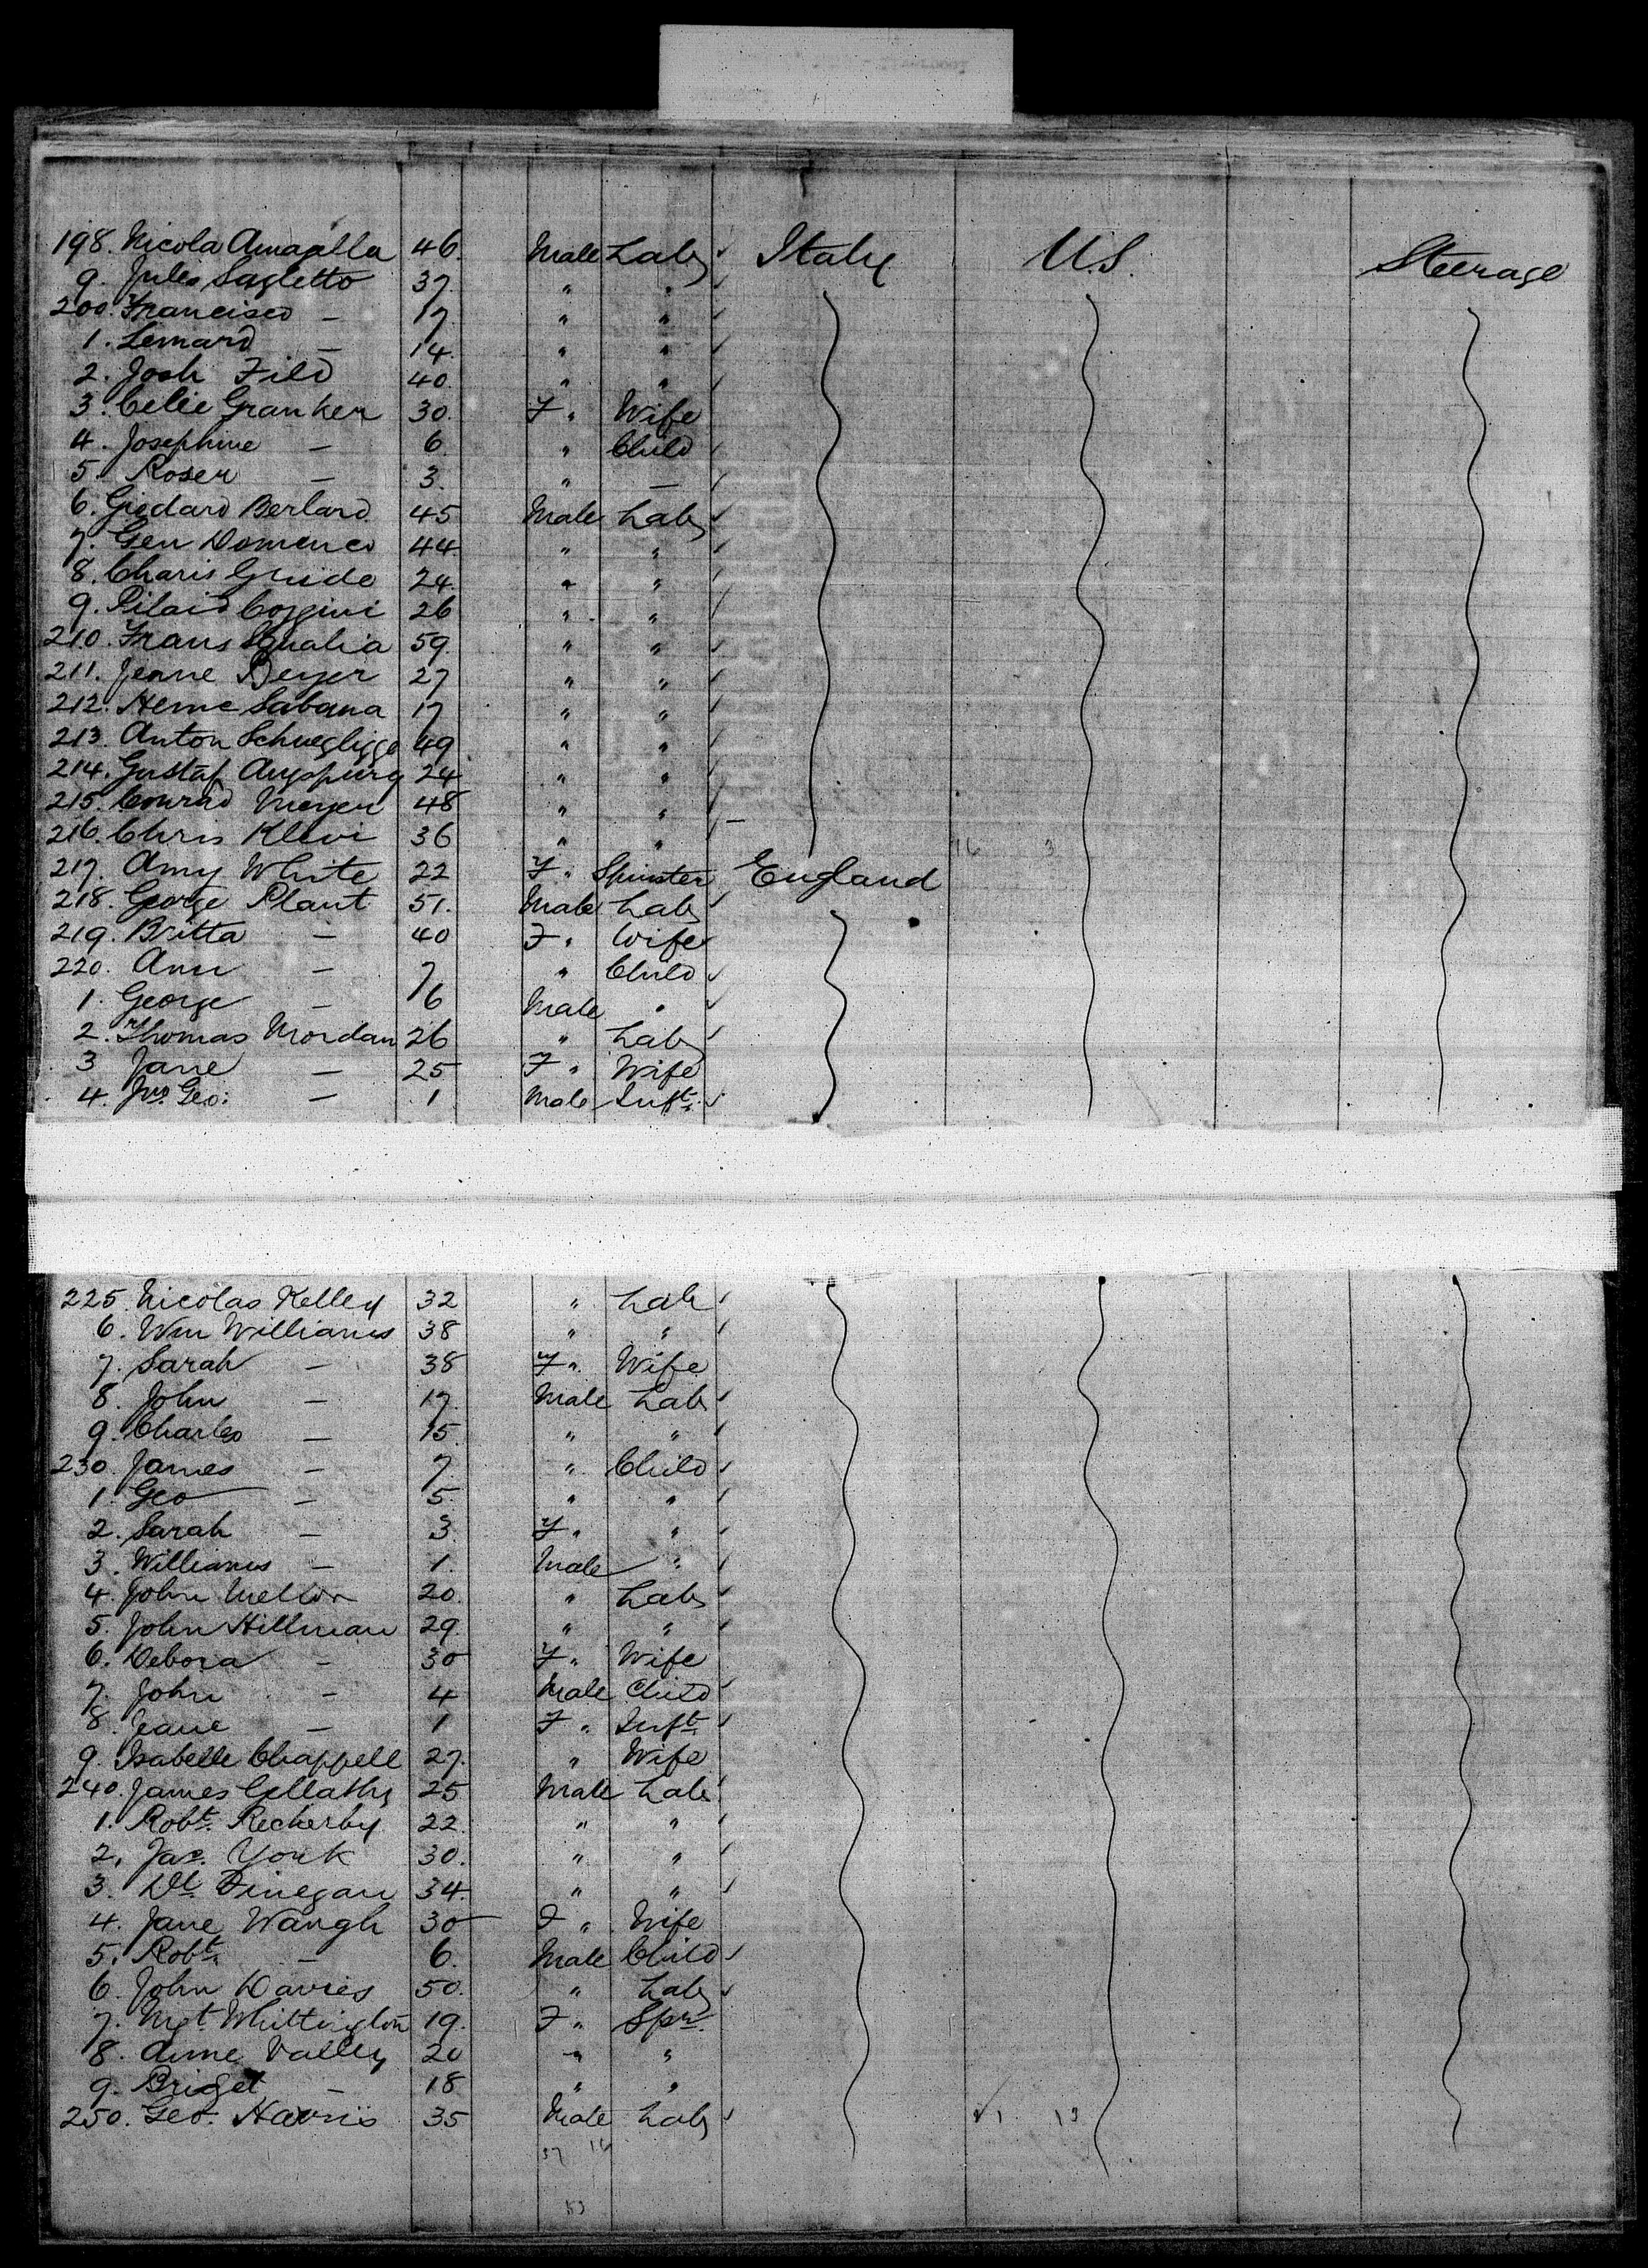 198. Nicola Amapalla 46. Male Labr Italy U.S. Steerage
9. Jules Sagletto 37. " "
200. Francisco — 17. " "
1. Lenard — 14. " "
2. Josh Fild 40. " "
3. Celie Granker 30. F " Wife
4. Josephine — 6 " Child
5. Roser — 3. " —
6. Giedard Berlard 45 Male Labr
7. Gen Domenco 44 " "
8. Charis Guide 24. " "
9. Pilaid Coggini 26 " "
210. Frans Squalia 59. " "
211. Jenne Beyer 27 " "
212. Herne Sabana 17 " "
213. Anton 49 " "
214. Gustaf Augspurg 24 " "
215. Conrad Meyer 48 " "
216. Chris Klevi 36 " "
217. Amy White 22 F " Spinster England
218. George Plant 51. Male Labr
219. Britta — 40 F " Wife
220. Ann — 7 " Child
1. George — 6 Male "
2. Thomas Mordan 26 " Labr
3 Jane — 25 F " Wife
4. Jno. Geo: — 1 Male Inft.
225. Nicolas Kelley 32 " Labr
6. Wm Williams 38 " "
7. Sarah — 38 F " Wife
8. John — 17. Male Labr
9. Charles — 15. " "
230. James — 7 " Child
1. Geo — 5. " "
2. Sarah — 3. F " "
3. Williams — 1. Male "
4. John Mellor 20. " Labr
5. John Hillman 29. " "
6. Debora — 30 F " Wife
7. John — 4 Male Child
8. Jeane — 1 F " Inft.
9. Isabelle Chappell 27. " Wife
240. James Gellathy 25 Male Labr
1. Robt. Recherby 22. " "
2. Jas. York 30. " "
3. Dl. Finegan 34. " "
4. Jane Waugh 30 F " Wife
5. Robt. — 6. Male Child
6. John Davies 50. " Labr
7. Mgt. Whittington 19. F " Spr.
8. Anne Valley 20 " "
9. Briget — 18 " "
250. Geo. Harris 35 Male Labr